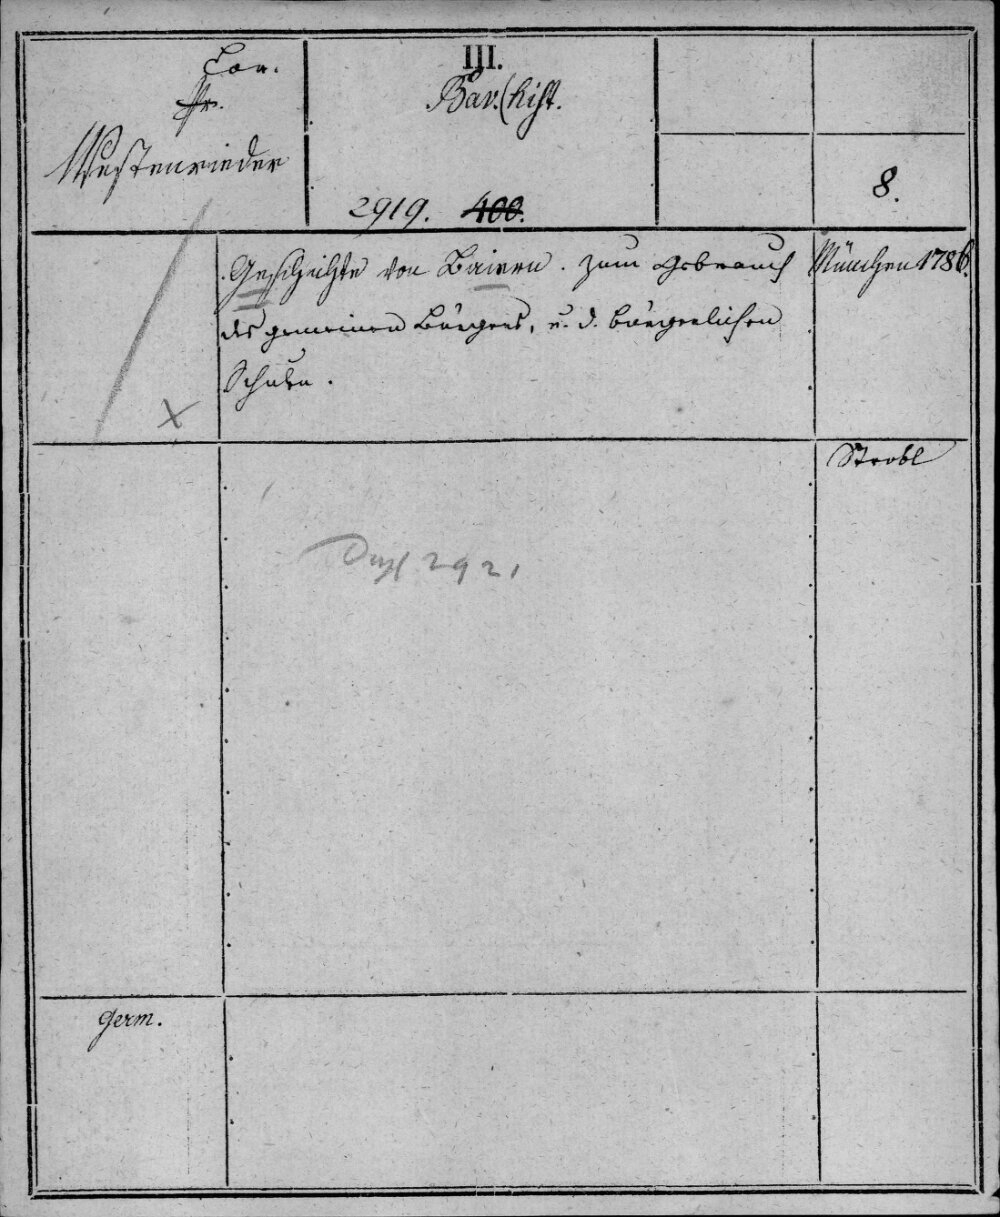 Lor.
Fr.
Westenrieder
III.
Bav. (hist.
2919. 400.
8.
Geschichte von Baiern. zum Gebrauch
des gemeinen Bürgers, u. d. bürgerlichen
Schulen.
München 1786.
X
Strobl
Dupl 2921
germ.